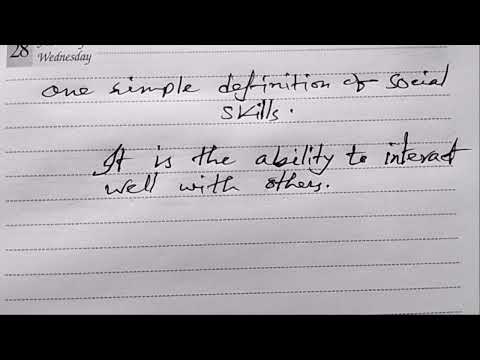 28
Wednesday
one simple definition of social
skills.
It is the ability to interact
well with others.